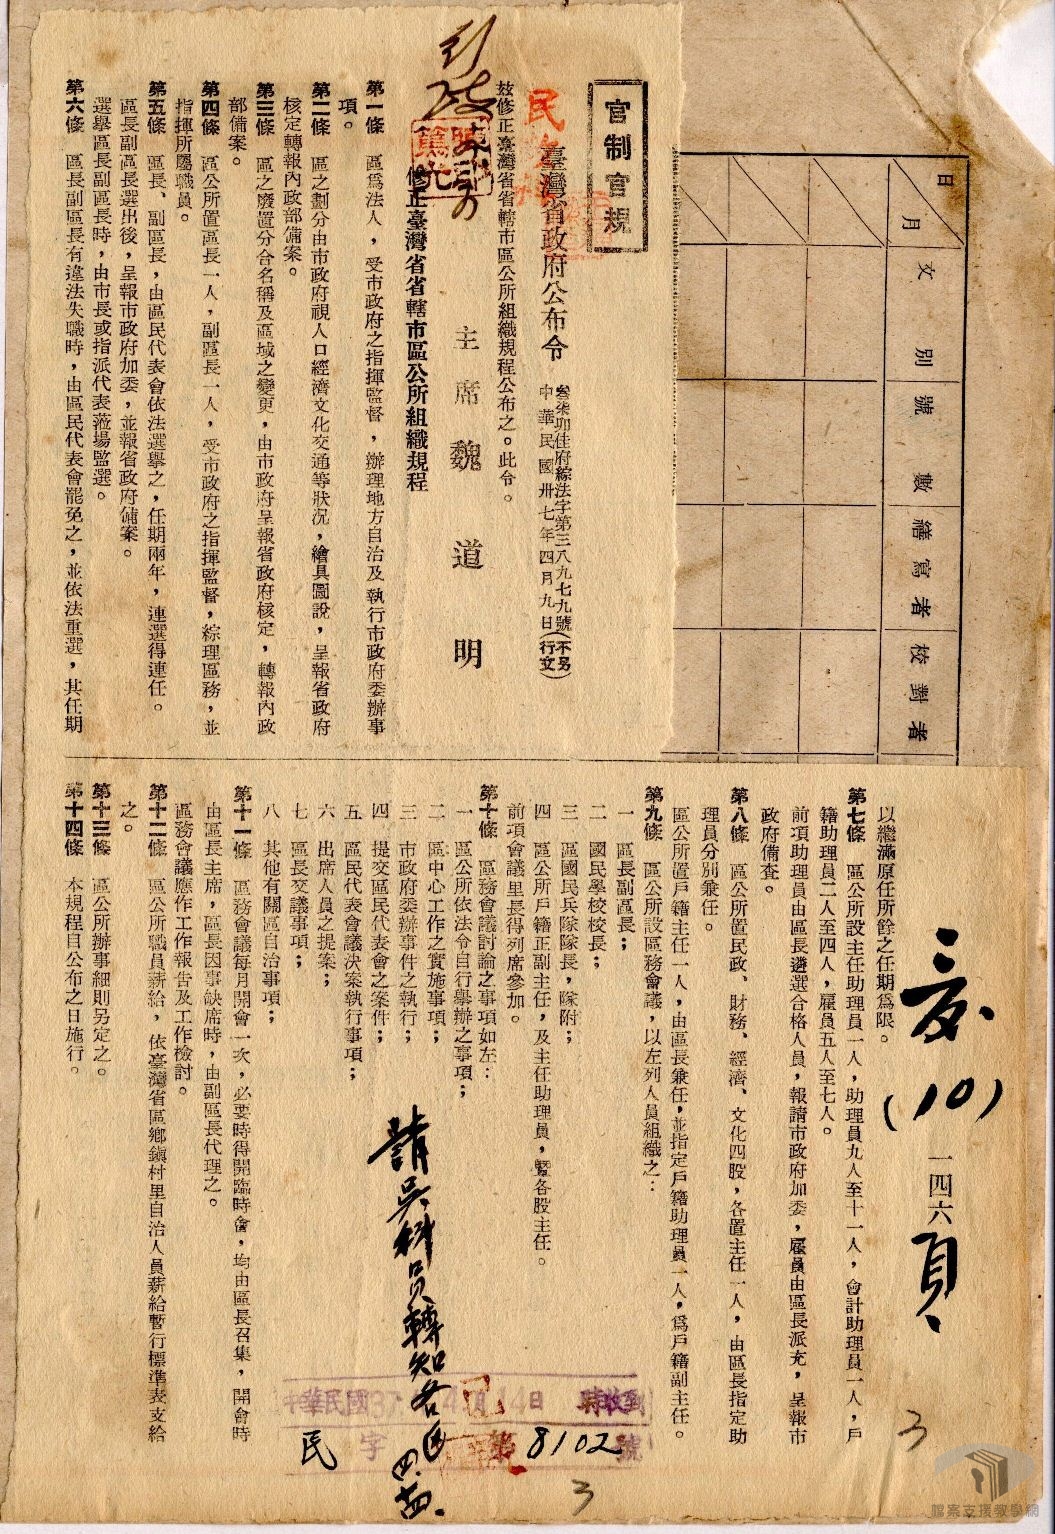 官制官規
臺灣省政府公布令
叁柒卯佳府綜法字第三八九七九號(不另行文)
中華民國卅七年四月九日
玆修正臺灣省省轄市區公所組織規程公布之。此令。
主席魏道明
修正臺灣省省轄市區公所組織規程
第一條　區爲法人，受市政府之指揮監督，辦理地方自治及執行市政府委辦事
項。
第二條　區之劃分由市政府視人口經濟文化交通等狀況，繪具圖說，呈報省政府
核定轉報內政部備案。
第三條　區之廢置分合名稱及區域之變更，由市政府呈報省政府核定，轉報內政
部備案。
第四條　區公所置區長一人，副區長一人，受市政府之指揮監督，綜理區務，並
指揮所屬職員。
第五條　區長、副區長，由區民代表會依法選舉之，任期兩年，連選得連任。
區長副區長選出後，呈報市政府加委，並報省政府備案。
選舉區長副區長時，由市長或指派代表蒞場監選。
第六條　區長副區長有違法失職時，由區民代表會罷免之，並依法重選，其任期
日
月
文別
號數
繕寫者
校對者
夏(10)一四六頁
以繼滿原任所餘之任期爲限。
第七條　區公所設主任助理員一人，助理員九人至十一人，會計助理員一人，戶
籍助理員二人至四人，雇員五人至七人。
前項助理員由區長遴選合格人員，報請市政府加委，雇員由區長派充，呈報市
政府備查。
第八條　區公所置民政、財務、經濟、文化四股，各置主任一人，由區長指定助
理員分別兼任。
區公所置戶籍主任一人，由區長兼任，並指定戶籍助理員一人，爲戶籍副主任。
第九條　區公所設區務會議，以左列人員組織之：
一　區長副區長；
二　國民學校校長；
三　區國民兵隊隊長，隊附；
四　區公所戶籍正副主任，及主任助理員，暨各股主任。
前項會議里長得列席參加。
第十條　區務會議討論之事項如左：
一　區公所依法令自行舉辦之事項；
二　區中心工作之實施事項；
三　市政府委辦事件之執行；
四　提交區民代表會之案件；
五　區民代表會議決案執行事項；
六　出席人員之提案；
七　區長交議事項；
八　其他有關區自治事項；
第十一條　區務會議每月開會一次，必要時得開臨時會，均由區長召集，開會時
由區長主席，區長因事缺席時，由副區長代理之。
區務會議應作工作報告及工作檢討。
第十二條　區公所職員薪給，依臺灣省區鄉鎮村里自治人員薪給暫行標準表支給
之。
第十三條　區公所辦事細則另定之。
第十四條　本規程自公布之日施行。
請吳科員轉知各區
中華民國37年4月14日　時收到
民字第8102號
3
3
檔案支援教學網